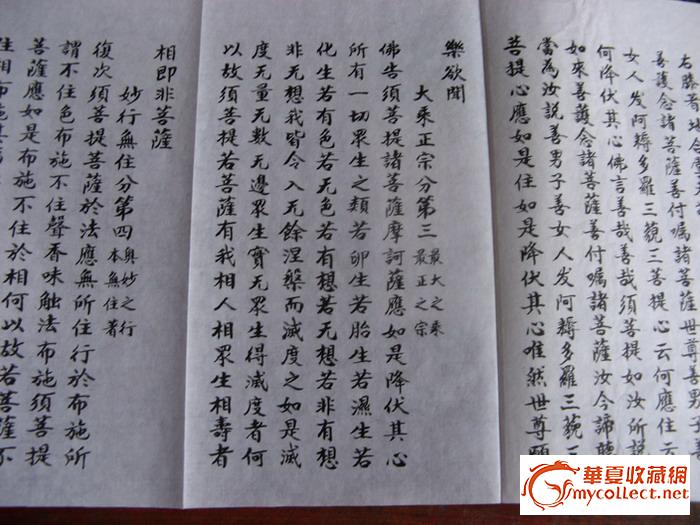 右膝着地
善護念諸菩薩善付嘱諸菩薩世尊善男子善
女人发阿耨多羅三藐三菩提心云何應住云
何降伏其心佛言善哉善哉須菩提如汝所說
如來善護念諸菩薩善付嘱諸菩薩汝今諦聽
當為汝說善男子善女人发阿耨多羅三藐三
菩提心應如是住如是降伏其心唯然世尊願
樂欲聞
大乘正宗分第三
最大之乘
最正之宗
佛告須菩提諸菩薩摩訶薩應如是降伏其心
所有一切眾生之類若卵生若胎生若濕生若
化生若有色若无色若有想若无想若非有想
非无想我皆令入无餘涅槃而滅度之如是滅
度无量无数无邊眾生實无眾生得滅度者何
以故須菩提若菩薩有我相人相眾生相壽者
相即非菩薩
妙行無住分第四
奧妙之行
本無住著
復次須菩提菩薩於法應無所住行於布施所
謂不住色布施不住聲香味触法布施須菩提
菩薩應如是布施不住於相何以故若菩薩不
住相布施其
華夏收藏網
mycollect.net